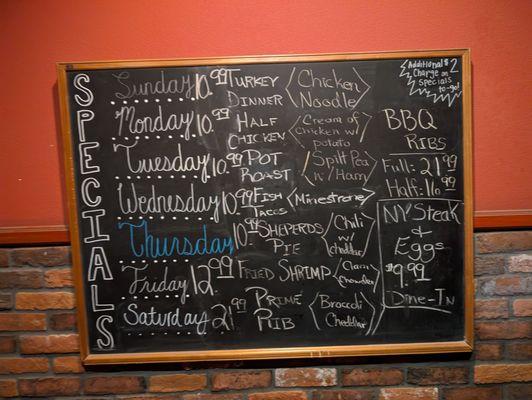 SPECIALS
Sunday 10.99 Turkey Dinner <Chicken Noodle>
Monday 10.99 Half Chicken <Cream of Chicken w/ potato>
Tuesday 10.99 Pot Roast <Split Pea w/ Ham>
Wednesday 10.99 Fish Tacos <Minestrone>
Thursday 10.99 Sheperds Pie <Chili w/ cheddar>
Friday 12.99 Fried Shrimp <Clam Chowder>
Saturday 21.99 Prime Rib <Broccoli Cheddar>
Additional $
Charge on 2
Specials
to-go!
BBQ
Ribs
Full: 21.99
Half: 16.99
NY Steak
&
Eggs
$9.99
Dine-In